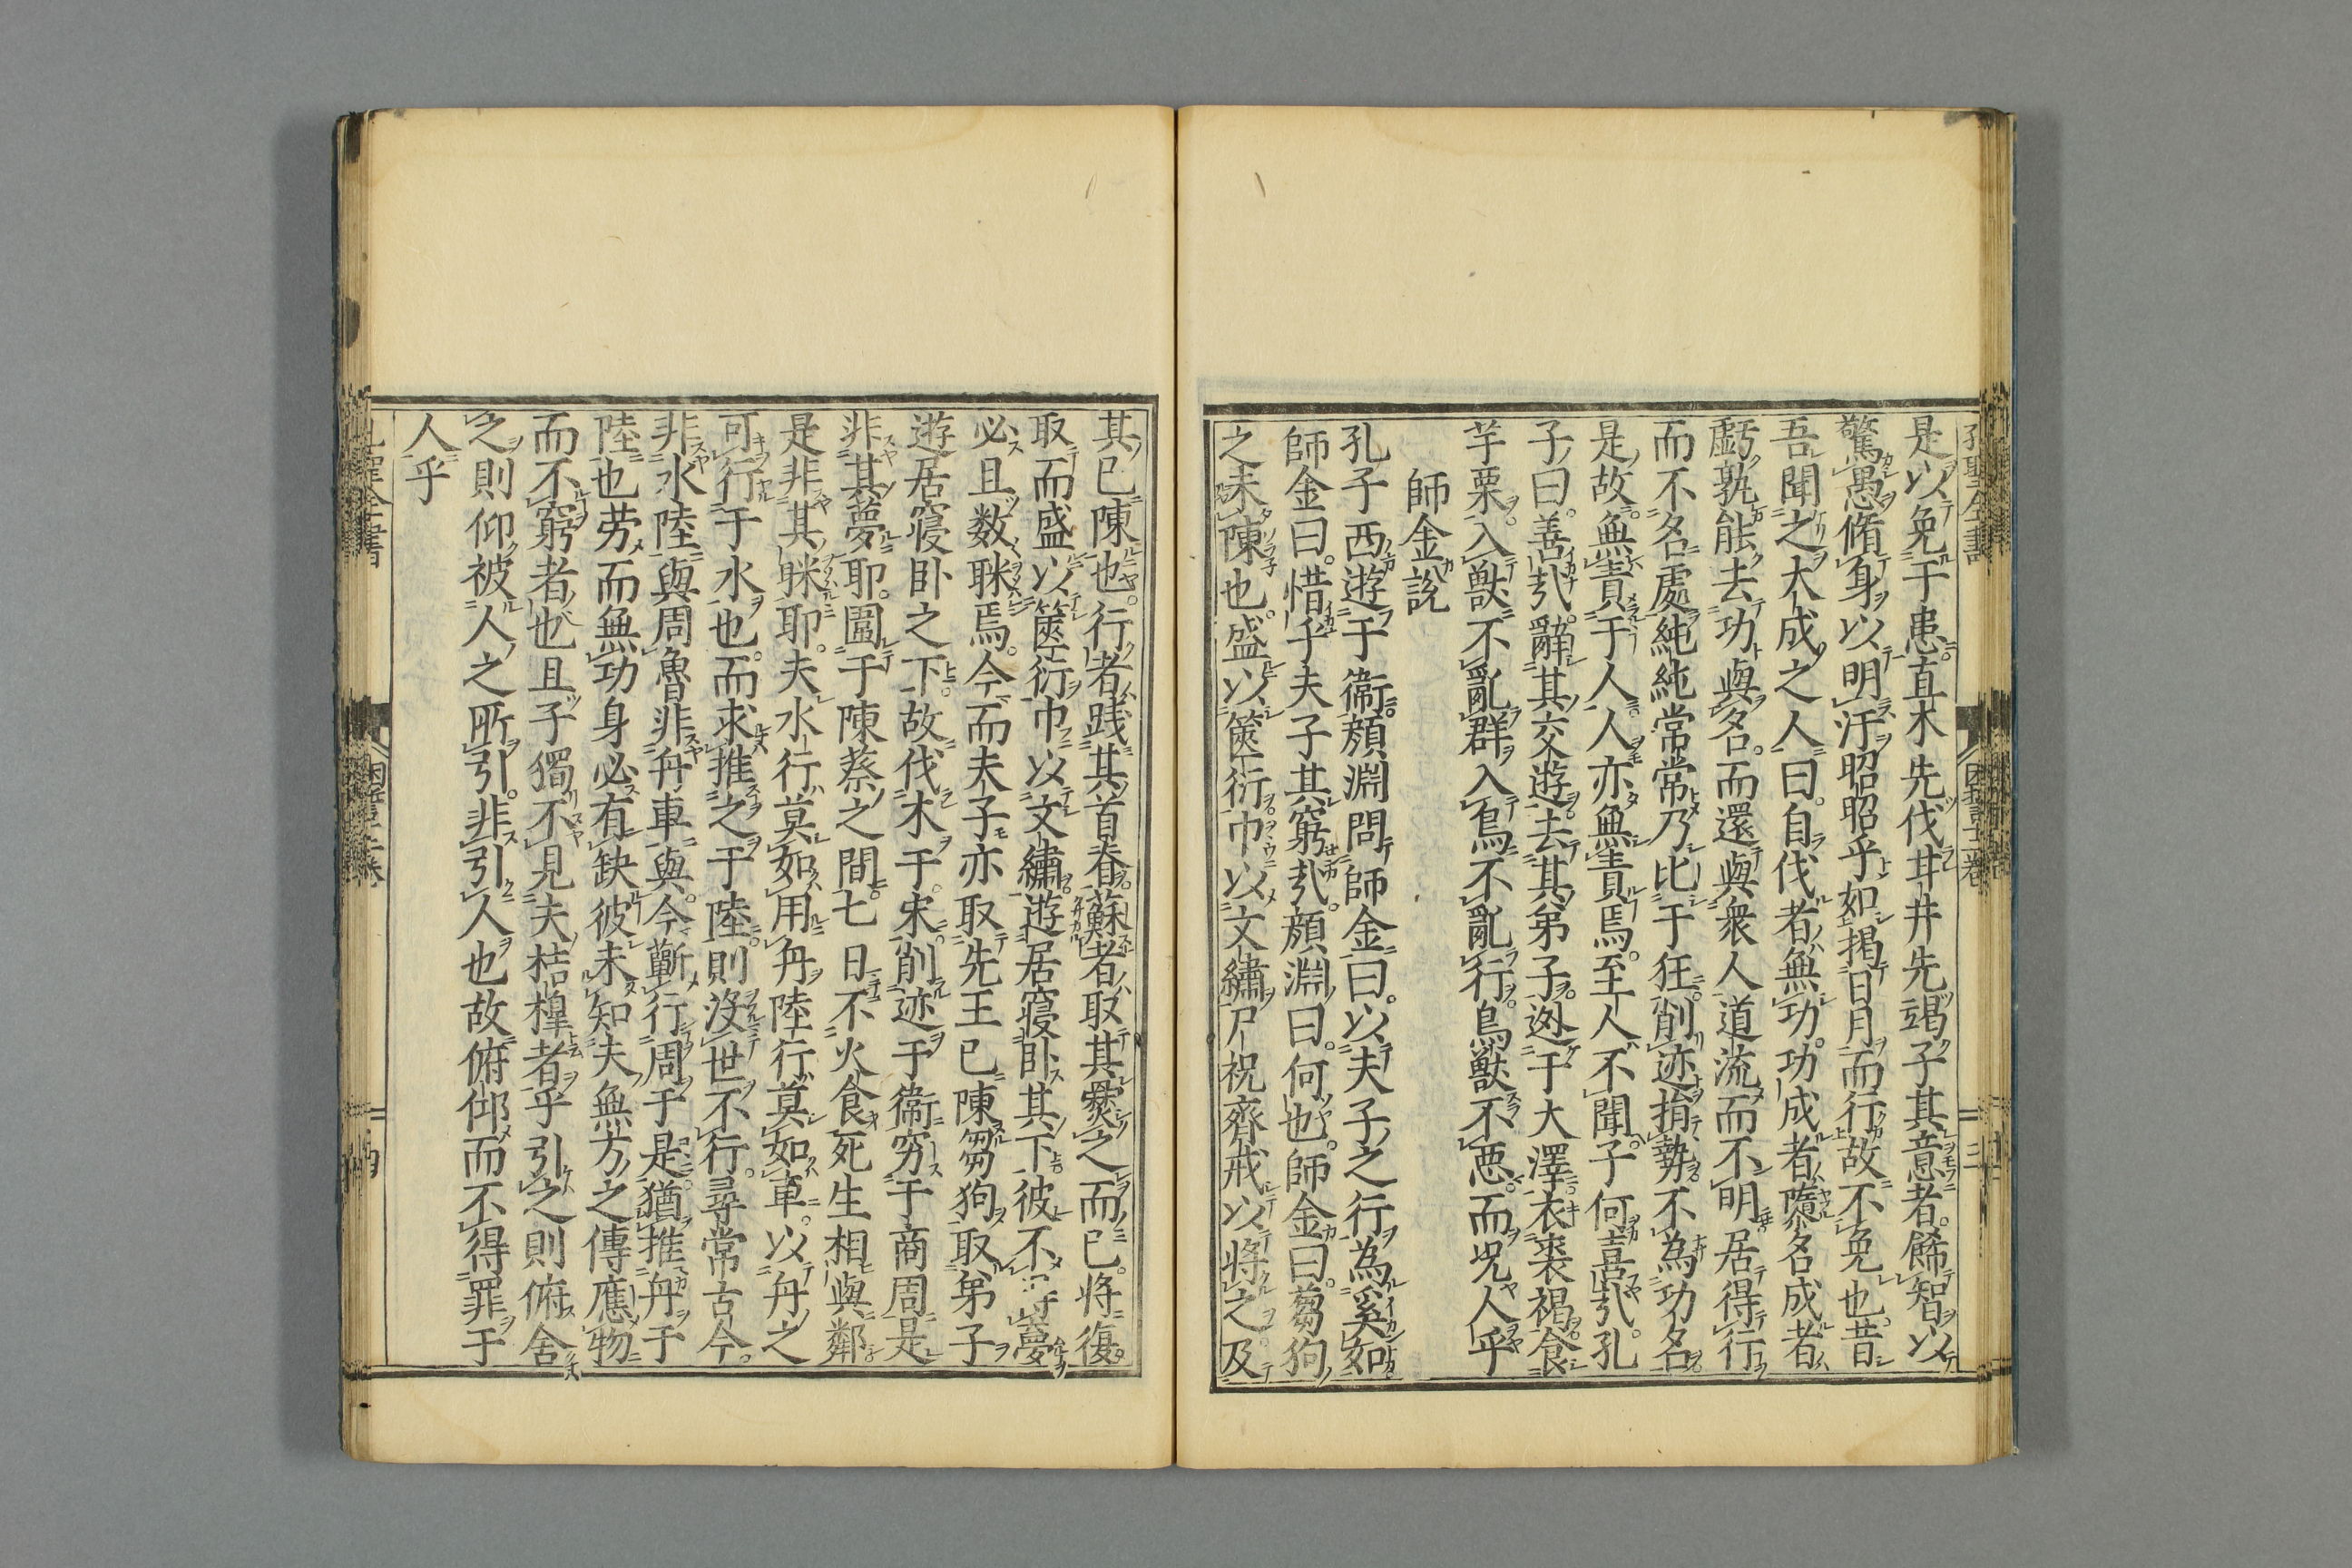 是以免于患直木先伐甘井先竭子其意者餙智以
驚愚脩身以明汙昭昭乎如掲日月而行故不免也昔
吾聞之大成之人曰自伐者無功功成者隳名成者
虧孰能去功與名而還與衆人道流而不明居得行
而不名處純純常常乃比于狂削迹捐勢不為功名
是故無責于人人亦無責焉至人不聞子何喜哉孔
子曰善哉辭其交遊去其弟子逃于大澤衣裘褐食
芧栗入獸不亂群入鳥不亂行鳥獸不悪而况人乎
師金說
孔子西遊于衞顔淵問師金曰以夫子之行為奚如
師金曰惜乎夫子其窮哉顔淵曰何也師金曰芻狗
之未陳也盛以篋衍巾以文繡尸祝齊戒以將之及
其已陳也行者践其首脊蘇者取其爨之而已將復
取而盛以篋衍巾以文繡遊居寢卧其下彼不得夢
必且数眯焉今而夫子亦取先王已陳芻狗取弟子
遊居寢卧之下故伐木于宋削迹于衞窮于商周是
非其夢耶圍于陳蔡之間七日不火食死生相與鄰
是非其眯耶夫水行莫如用舟陸行莫如車以舟之
可行于水也而求推之于陸則沒世不行尋常古今
非水陸與周魯非舟車與今蘄行周于是猶推舟于
陸也劳而無功身必有缺彼未知夫無方之傳應物
而不窮者也且子獨不見夫桔槹者乎引之則俯舎
之則仰被人之所引非引人也故俯仰而不得罪于
人乎